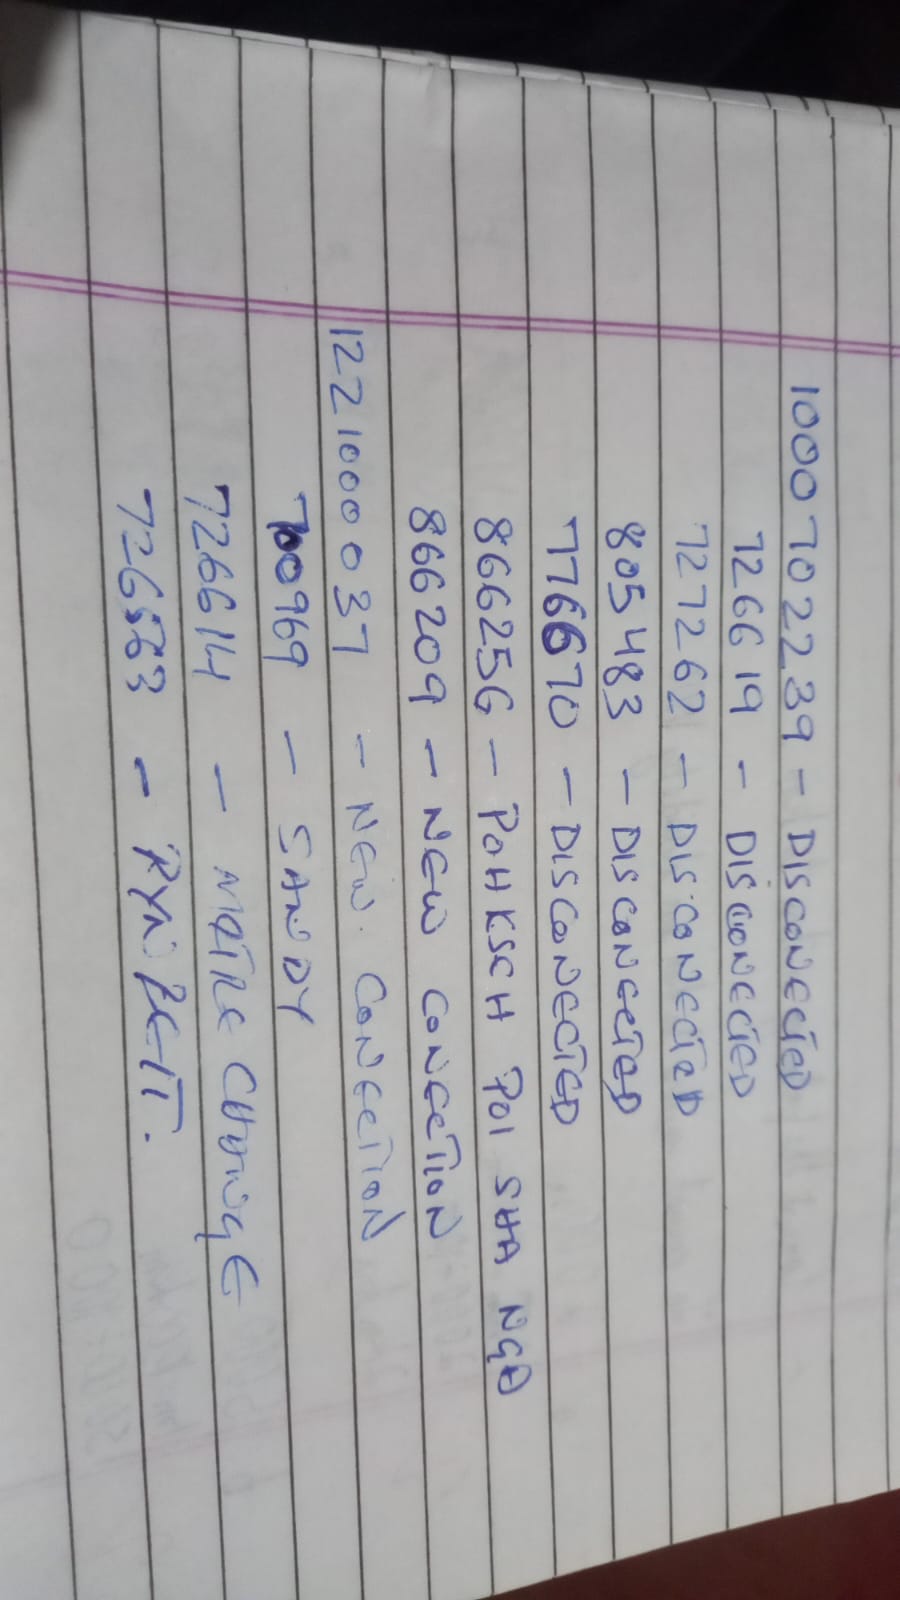 1000 7022239 - DISCONECTED
726619 - DISCONECTED
727262 - DISCONECTED
805483 - DISCONECTED
776670 - DISCONECTED
866256 - POHKSEH POI SHA NGA
866209 - NEW CONECTION
1221000037 - NEW. CONECTION
700969 - SANDY
726614 - CHANGE
726583 -